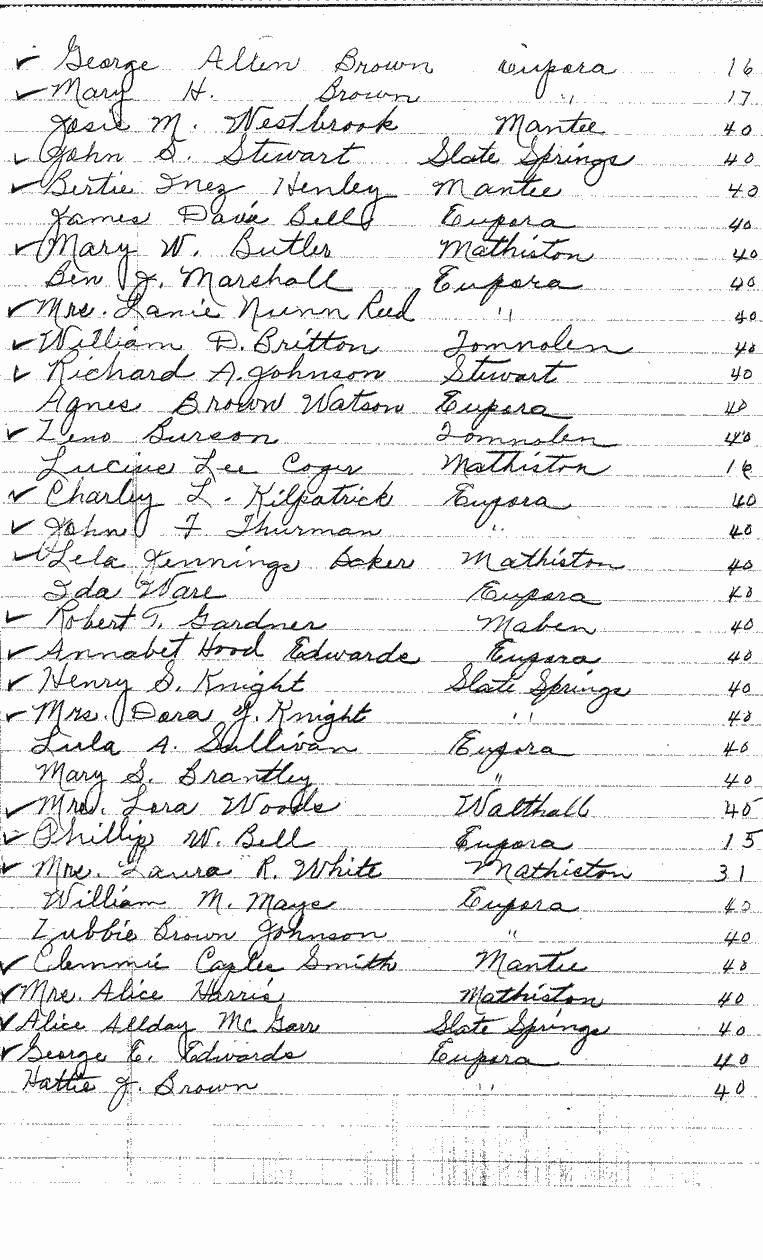 ✓ George Allen Brown Eupora 16
✓ Mary H. Brown " 17
Josie M. Westbrook Mantee 40
✓ John S. Stewart Slate Springs 40
✓ Bertie Inez Henley Mantee 40
James Davie Bell Eupora 40
✓ Mary W. Butler Mathiston 40
Ben J. Marshall Eupora 40
✓ Mrs. Lanie Nunn Reed " 40
✓ William D. Britton Tomnolen 40
✓ Richard A. Johnson Stewart 40
Agnes Brown Watson Eupora 40
✓ Zeno Burson Tomnolen 40
Lucius Lee Coger Mathiston 16
✓ Charley L. Kilpatrick Eupora 40
✓ John F Thurman " 40
✓ Lela Jennings Baker Mathiston 40
Ida Ware Eupora 40
✓ Robert T. Gardner Maben 40
✓ Annabet Hood Edwards Eupora 40
✓ Henry S. Knight Slate Springs 40
✓ Mrs. Dora Y. Knight " 40
Lula A. Sullivan Eupora 40
Mary S. Brantley " 40
✓ Mrs. Lora Woods Walthall 45
✓ Phillip W. Bell Eupora 15
✓ Mrs. Laura R. White Mathiston 31
William M. Mays Eupora 40
Zubbie Brown Johnson " 40
✓ Clemmie Smith Mantee 40
✓ Mrs. Alice Harris Mathiston 40
✓ Alice Allday McGarr Slate Springs 40
✓ George E. Edwards Eupora 40
Hattie J. Brown " 40